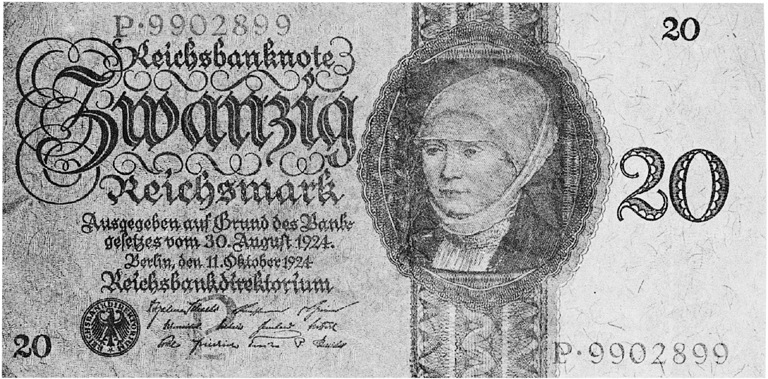 P·9902899
20
Reichsbanknote
Zwanzig
Reichsmark
20
Ausgegeben auf Grund des Bank-
gesetzes vom 30. August 1924.
Berlin, den 11. Oktober 1924
Reichsbankdirektorium
REICHSBANKDIREKTORIUM
20
P·9902899